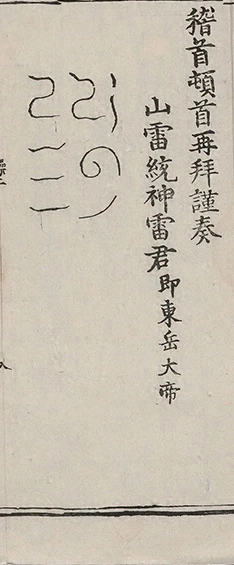 稽首頓首再拜謹奏
山雷統神雷君即東岳大帝